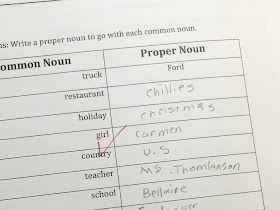 ns: Write a proper noun to go with each common noun.
ommon Noun Proper Noun
truck Ford
restaurant chillies
holiday christmas
girl Carmen
country U.S
teacher Ms. Thomlanson
school Bellaire